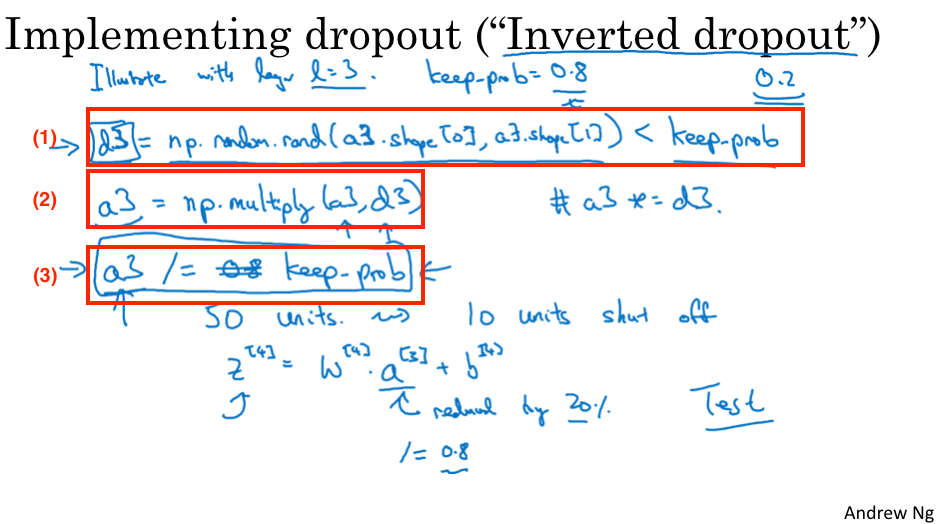 Implementing dropout (“Inverted dropout”)
Illustrate with layer l=3. keep-prob=0.8 0.2
(1) d3 = np.random.rand(a3.shape[0], a3.shape[1]) < keep-prob
(2) a3 = np.multiply(a3, d3) # a3 *= d3.
(3) a3 /= 0.8 keep-prob
50 units. ⇝ 10 units shut off
z^[4] = W^[4] · a^[3] + b^[4]
reduced by 20%. Test
/= 0.8
Andrew Ng